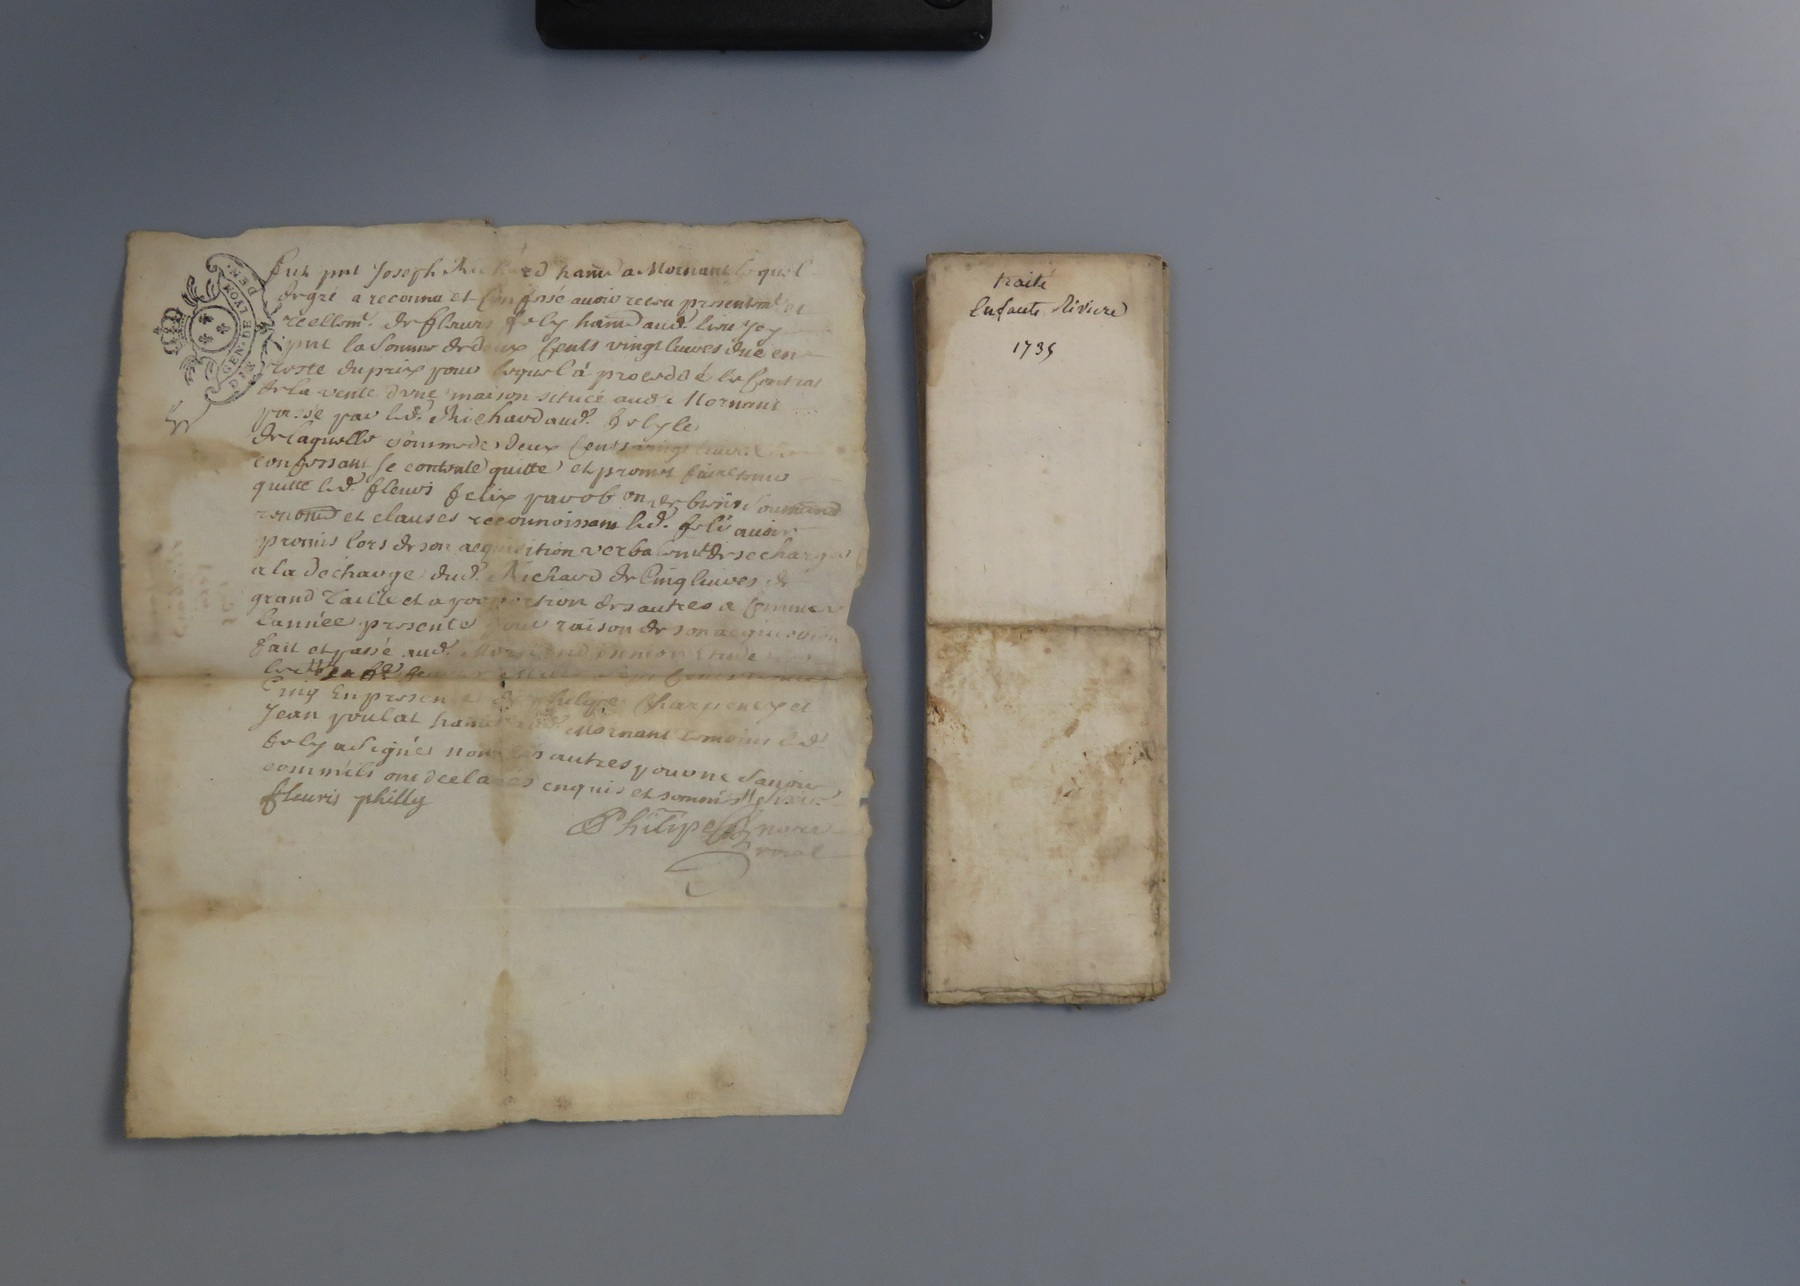 GEN. DE LYON
DEN.
Fut pnt Joseph Richard hant a Mornant lequel
de gré a reconnu et Confessé avoir recu presentemt et
reellemt. de fleuris fely hant aud. lieu Jcy
pnt la somme de deux Cents vingt livres due en
reste du prix pour lequel a procedé le Contrat
de la vente d'une maison située aud. Mornant
passé par led. Richard aud. fely le
de laquelle somme de deux Cents vingt livres
confessant se contente quitte et promet faire tenir
quitte led. fleuris felix par obon
renond et clauses reconnoissant led. feli avoir
promis lors de son acquisition verbalemt de se charger
a la décharge dud. Richard de Cinq livres de
grand Taille et a proportion des autres a Commencer
l'année presente pour raison de son acquisition
fait et passé aud. Mornant en mon Etude
le
Cinq En presence de philipe Charpenay et
Jean poulat hants aud. Mornant temoins led.
fely a signé non les autres pour ne Savoir
comm'ils ont declarés enquis et sommés
fleuris philly
Philipe
royal
traité
Enfants Riviere
1735